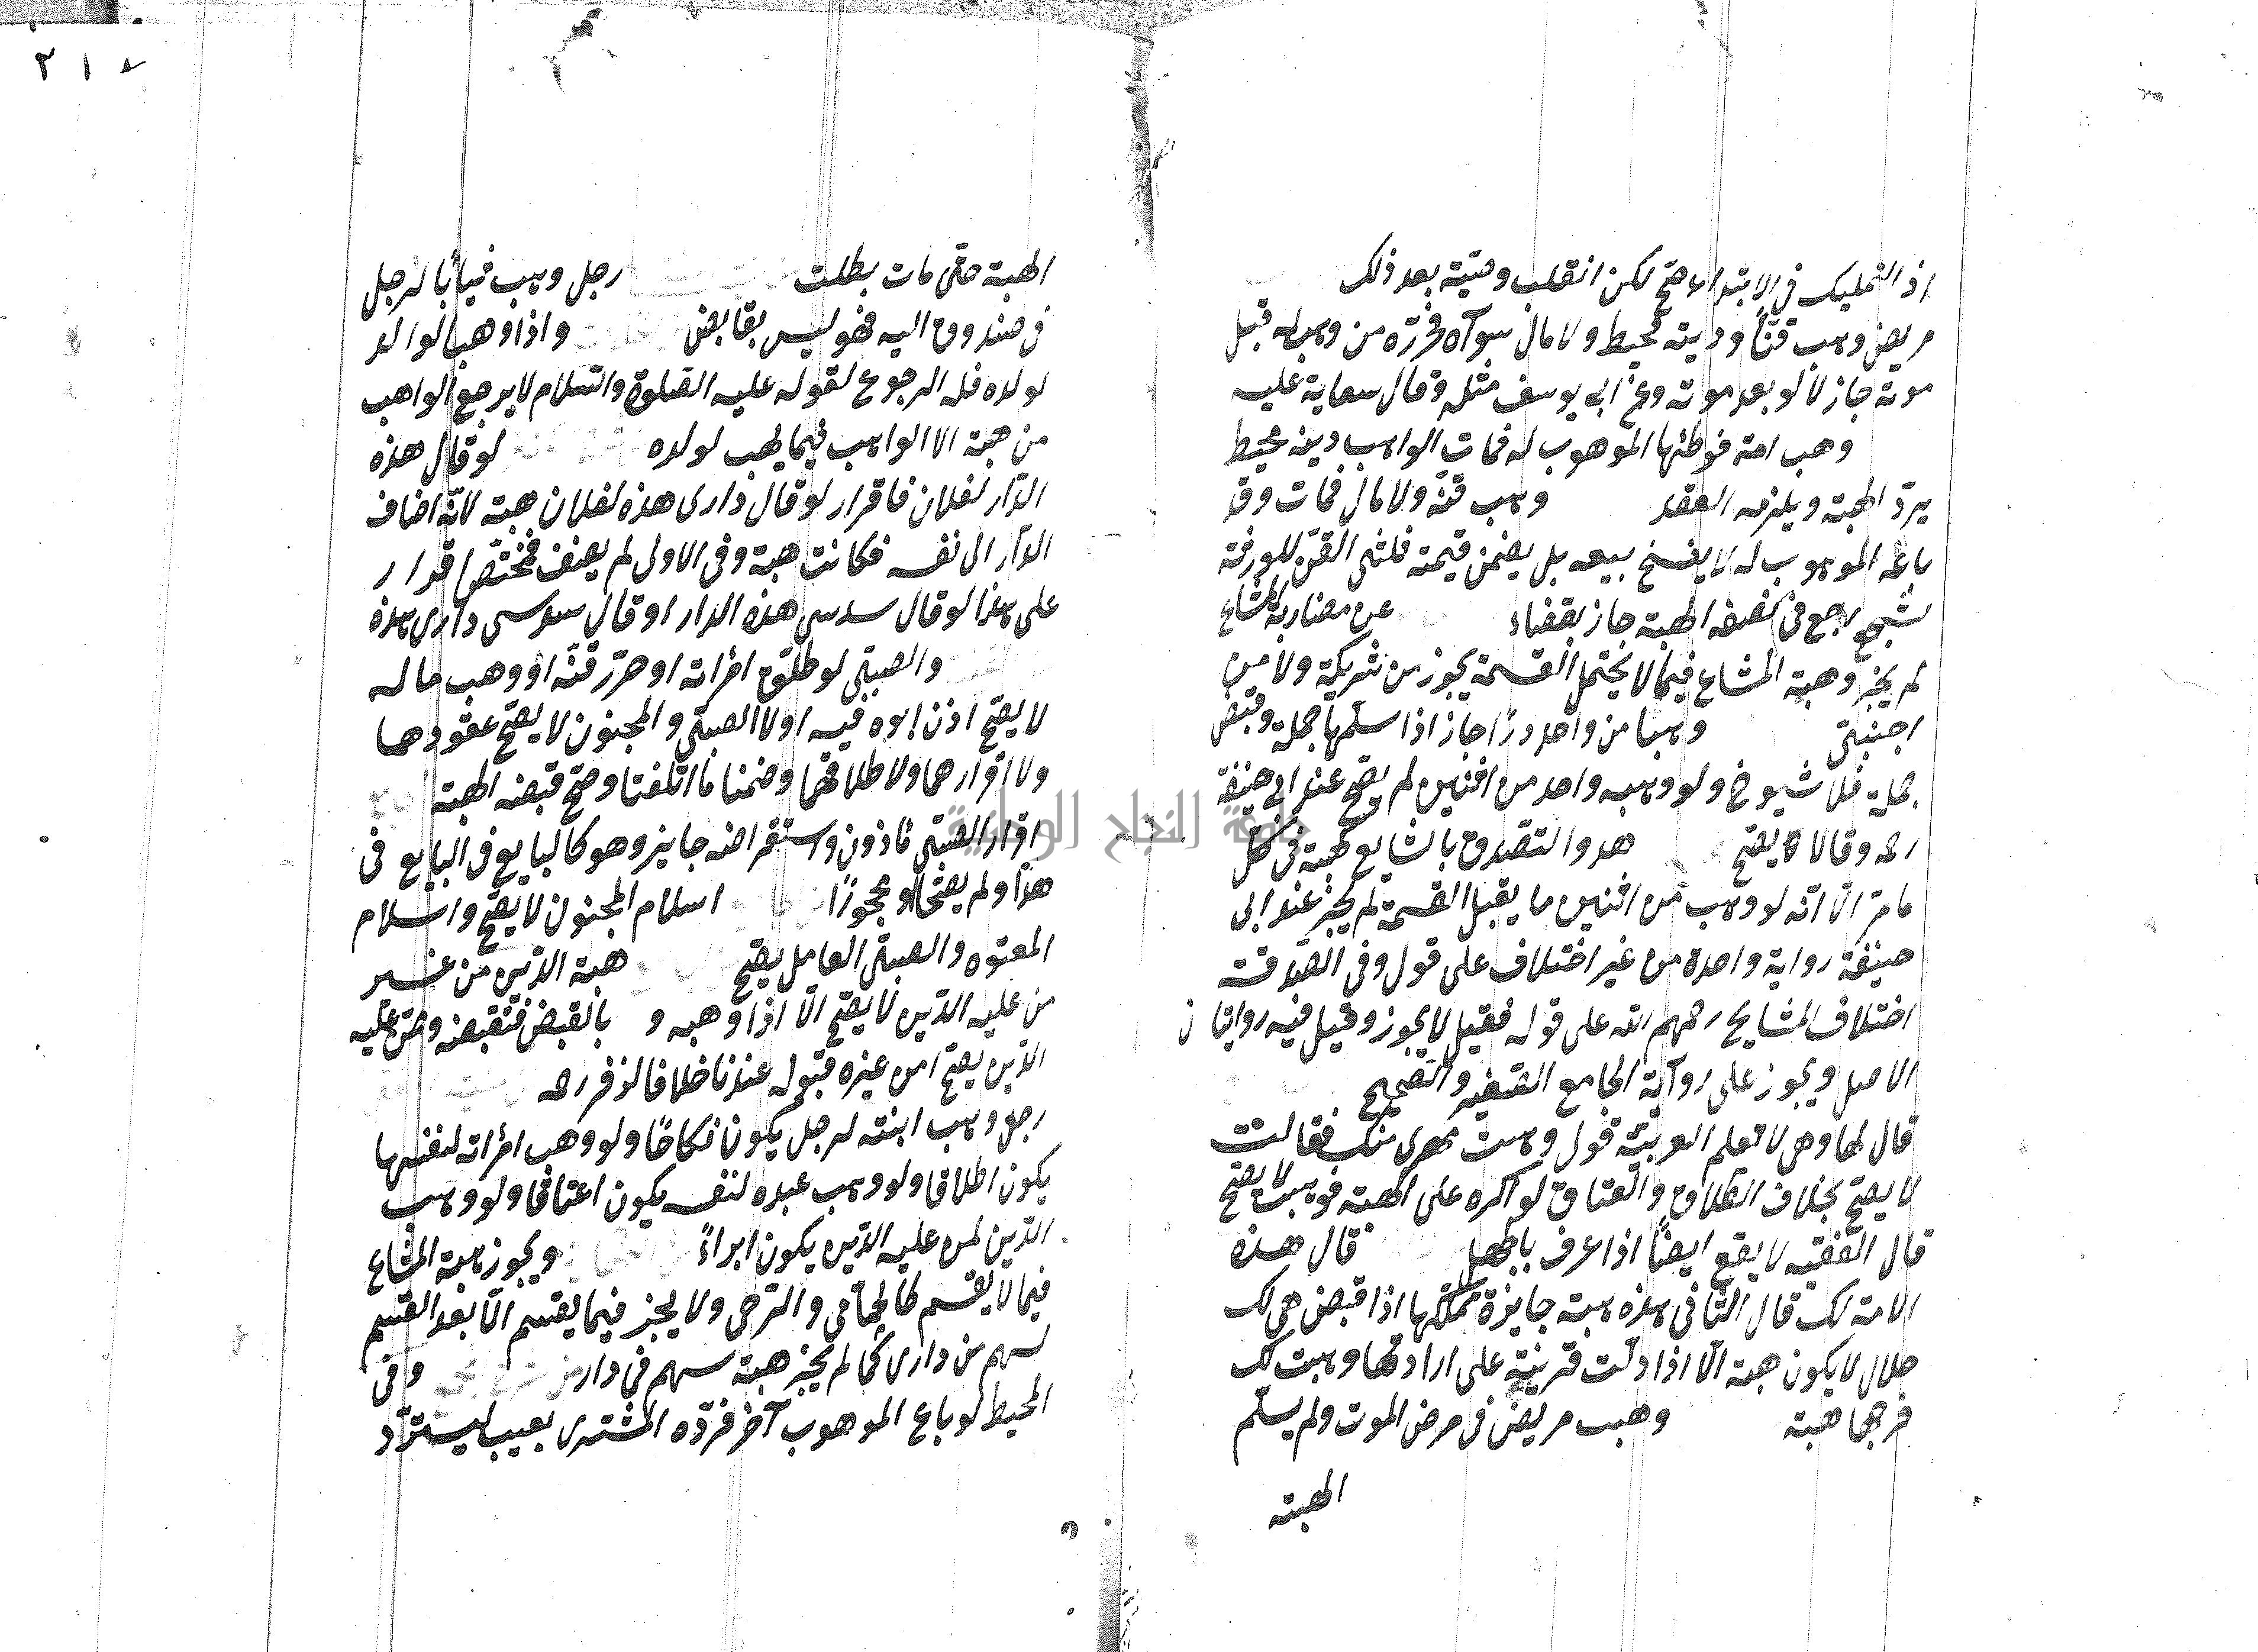 ٢١٨
اذ التمليك فى الابتداء صحّ لكن انقلب وصيّة بعد ذلك
مريض وهب قنّاً ودينه محيط ولا مال سوآه فحرّره من وهب له قبل
موته جاز لا لو بعد موته وعن ابى يوسف مثله وقال سعاية عليه
وهب امة فوطئها الموهوب له فمات الواهب ودينه محيط
يردّ الهبة ويلزمه العقد وهب قنّه ولا مال فمات وقد
باعه الموهوب له لا يفسخ بيعه بل يضمن قيمة ثلثى القنّ للورثة
رجع فى نصف الهبة جاز بقضاء عن مضاربة المشاع
لم يجز وهبة المشاع فيما لا يحتمل القسمة يجوز من شريكه ولا من
اجنبىّ وهبا من واحد دارًا جاز اذا سلّمها جملة وقبض
جملة فلا شيوخ ولو وهبه واحد من اثنين لم يصحّ عند ابى حنيفة
رحمه وقالا يصحّ هد والتصدق بالشايع كهبة فى كل
ما مرّ الّا انّه لو وهب من اثنين ما يقبل القسمة لم يجز عند ابى
حنيفة رواية واحدة من غير اختلاف على قول وفى الصّدقة
اختلاف المشايخ رحمهم الله على قوله فقيل لا يجوز وقيل فيه روايتان
الاصل ويجوز على روآية الجامع الصّغير والصّحيح
قال لها وهى لا تعلم العربيّة قول وهبت مهرى منك فقالت
لا يصحّ بخلاف الطّلاق والعتاق لو اكره على الهبة فوهب لا يصحّ
قال الفقيه لا يقع ايضًا اذا عرف بالجهل قال هذه
الامة لك قال الثّانى هذه هبة جايزة تملّكها اذا قبض هى لك
حلال لا يكون هبة الّا اذا دلّت قرينة على ارادتها وهبت لك
فرجها هبة وهب مريض فى مرض الموت ولم يسلّم
الهبة
الهبة حتّى مات بطلت رجل وهب ثيابًا لرجل
فى صندوق اليه فهو ليس بقابض واذا وهب الوالد
لولده فله الرجوع لقوله عليه الصّلوة والسّلام لا يرجع الواهب
من هبة الا الواهب فيما يهب لولده لو قال هذه
الدّار لفلان فاقرار لو قال دارى هذه لفلان هبة لانّه اضاف
الدّار الى نفسه فكانت هبة وفى الاولى لم يضف اقرار
على هذا لو قال سدس هذه الدار او قال سدس دارى هذه
والصبىّ لو طلّق امرأته او حرّر قنّه او وهب ماله
لا يصحّ اذن ابوه فيه او لا الصبىّ والمجنون لا يصحّ عقودهما
ولا اقرارهما ولا طلاقهما وضمنا ما اتلفتا وصحّ قبضه الهبة
اقرار الصّبىّ مأذون واستقراضه جايز وهو كالبايع فى البايع فى
هذا ولم يصحّ لو محجورًا اسلام المجنون لا يصحّ واسلام
المعتوه والصبىّ العاقل يصحّ هبة الدّين من غير
من عليه الدّين لا يصحّ الّا اذا وهبه و بالقبض فتقبضه وهى عليه
الدّين يصحّ من غيره قبوله عندنا خلافا لزفر رحمه
رجل وهب ابنته لرجل يكون نكاحًا ولو وهب امرأته لنفسها
يكون اطلاقا ولو وهب عبده لنفسه يكون اعتاقا ولو وهب
الدّين لمن عليه الدّين يكون ابراءً ويجوز هبة المشاع
فيما لا يقسم كالحمّام والرّحى ولا يجز فيما يقسم الّا بعد القسم
لسهم من دارى كما لم يجز هبة سهم فى دار وفى
المحيط لو باع الموهوب آخر فردّه المشترى بعيب ليستردّ
جامعة النجاح الوطنية